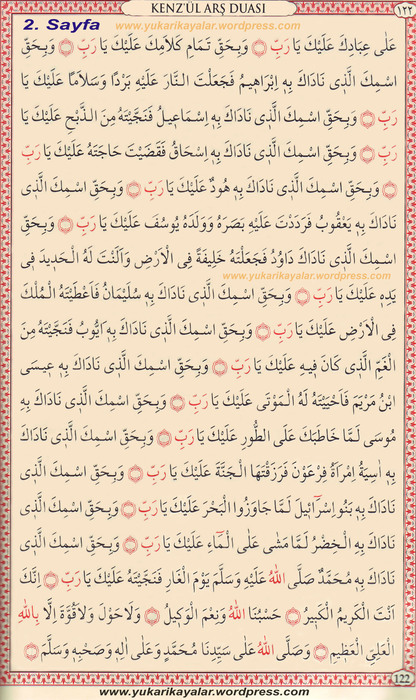 KENZ'ÜL ARŞ DUASI
١٢٢
2. Sayfa
www.yukarikayalar.wordpress.com
عَلٰى عِبَادِكَ عَلَيْكَ يَا رَبِّ ۝ وَبِحَقِّ تَمَامِ كَلَامِكَ عَلَيْكَ يَا رَبِّ ۝ وَبِحَقِّ
اسْمِكَ الَّذ۪ى نَادَاكَ بِه۪ اِبْرَاه۪يمُ فَجَعَلْتَ النَّارَ عَلَيْهِ بَرْدًا وَسَلَامًا عَلَيْكَ يَا
رَبِّ ۝ وَبِحَقِّ اسْمِكَ الَّذ۪ى نَادَاكَ بِه۪ اِسْمَاع۪يلُ فَنَجَّيْتَهُ مِنَ الذَّبْحِ عَلَيْكَ يَا
رَبِّ ۝ وَبِحَقِّ اسْمِكَ الَّذ۪ى نَادَاكَ بِه۪ اِسْحَاقُ فَقَضَيْتَ حَاجَتَهُ عَلَيْكَ يَا رَبِّ
۝ وَبِحَقِّ اسْمِكَ الَّذ۪ى نَادَاكَ بِه۪ هُودٌ عَلَيْكَ يَا رَبِّ ۝ وَبِحَقِّ اسْمِكَ الَّذ۪ى
نَادَاكَ بِه۪ يَعْقُوبُ فَرَدَدْتَ عَلَيْهِ بَصَرَهُ وَوَلَدَهُ يُوسُفَ عَلَيْكَ يَا رَبِّ ۝ وَبِحَقِّ
اسْمِكَ الَّذ۪ى نَادَاكَ بِه۪ دَاوُدُ فَجَعَلْتَهُ خَل۪يفَةً فِى الْاَرْضِ وَاَلَنْتَ لَهُ الْحَد۪يدَ ف۪ى
www.yukarikayalar.wordpress.com
يَدِه۪ عَلَيْكَ يَا رَبِّ ۝ وَبِحَقِّ اسْمِكَ الَّذ۪ى نَادَاكَ بِه۪ سُلَيْمَانُ فَاَعْطَيْتَهُ الْمُلْكَ
فِى الْاَرْضِ عَلَيْكَ يَا رَبِّ ۝ وَبِحَقِّ اسْمِكَ الَّذ۪ى نَادَاكَ بِه۪ اَيُّوبُ فَنَجَّيْتَهُ مِنَ
الْغَمِّ الَّذ۪ى كَانَ ف۪يهِ عَلَيْكَ يَا رَبِّ ۝ وَبِحَقِّ اسْمِكَ الَّذ۪ى نَادَاكَ بِه۪ ع۪يسَى
ابْنُ مَرْيَمَ فَاَحْيَيْتَهُ لَهُ الْمَوْتٰى عَلَيْكَ يَا رَبِّ ۝ وَبِحَقِّ اسْمِكَ الَّذ۪ى نَادَاكَ بِه۪
مُوسٰى لَمَّا خَاطَبَكَ عَلَى الطُّورِ عَلَيْكَ يَا رَبِّ ۝ وَبِحَقِّ اسْمِكَ الَّذ۪ى نَادَاكَ
بِه۪ اٰسِيَةُ امْرَاَةُ فِرْعَوْنَ فَرَزَقْتَهَا الْجَنَّةَ عَلَيْكَ يَا رَبِّ ۝ وَبِحَقِّ اسْمِكَ الَّذ۪ى
نَادَاكَ بِه۪ بَنُو اِسْرَٓائ۪لَ لَمَّا جَاوَزُوا الْبَحْرَ عَلَيْكَ يَا رَبِّ ۝ وَبِحَقِّ اسْمِكَ الَّذ۪ى
نَادَاكَ بِهِ الْخِضْرُ لَمَّا مَشٰى عَلَى الْمَٓاءِ عَلَيْكَ يَا رَبِّ ۝ وَبِحَقِّ اسْمِكَ الَّذ۪ى
نَادَاكَ بِه۪ مُحَمَّدٌ صَلَّى اللهُ عَلَيْهِ وَسَلَّمَ يَوْمَ الْغَارِ فَنَجَّيْتَهُ عَلَيْكَ يَا رَبِّ ۝ اِنَّكَ
اَنْتَ الْكَر۪يمُ الْكَب۪يرُ ۝ حَسْبُنَا اللهُ وَنِعْمَ الْوَك۪يلُ ۝ وَلَاحَوْلَ وَلَاقُوَّةَ اِلَّا بِاللهِ
الْعَلِىِّ الْعَظ۪يمِ ۝ وَصَلَّى اللهُ عَلٰى سَيِّدِنَا مُحَمَّدٍ وَعَلٰى اٰلِه۪ وَصَحْبِه۪ وَسَلَّمَ ۝
122
www.yukarikayalar.wordpress.com